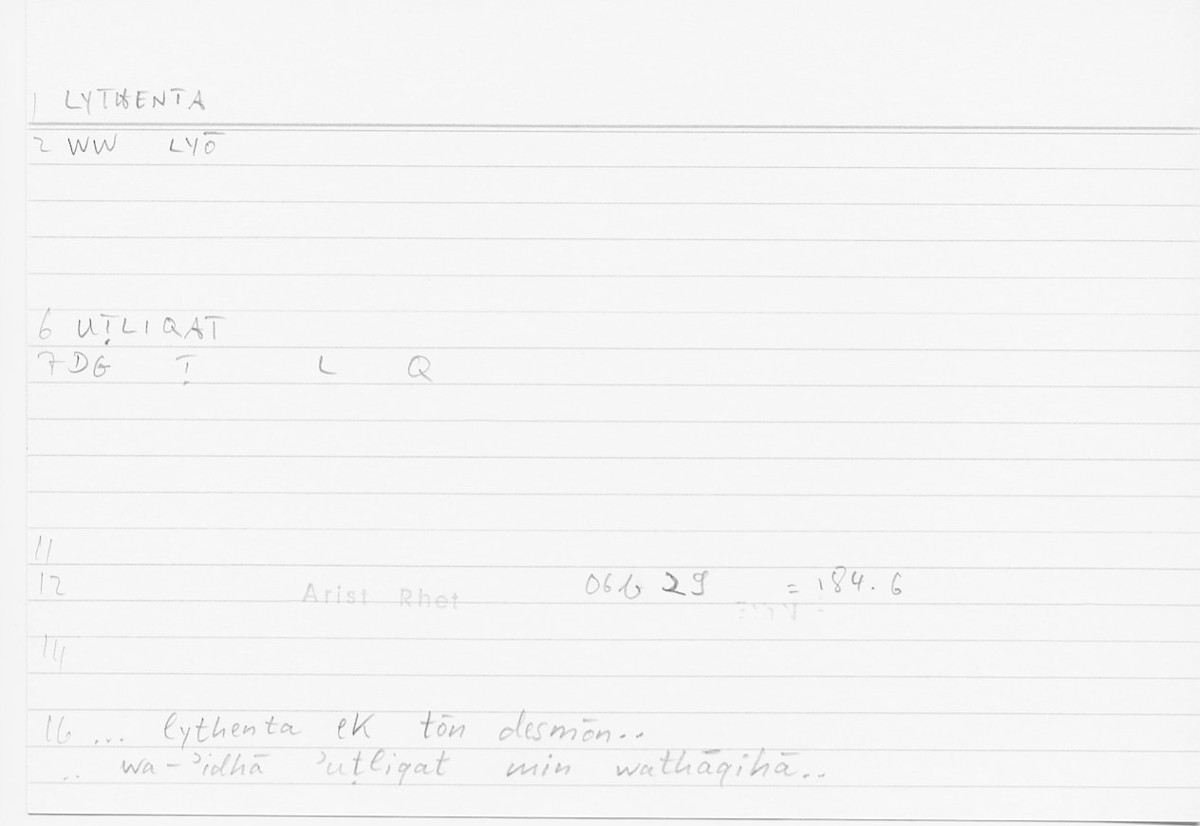 1 LYTHENTA
2 WW LYŌ
6 UṬLIQAT
7 DG Ṭ L Q
11
12 Arist Rhet 06b 29 = 184.6
14
16 ... lythenta ek tōn desmōn..
.. wa-ʾidhā ʾuṭliqat min wathāqihā..